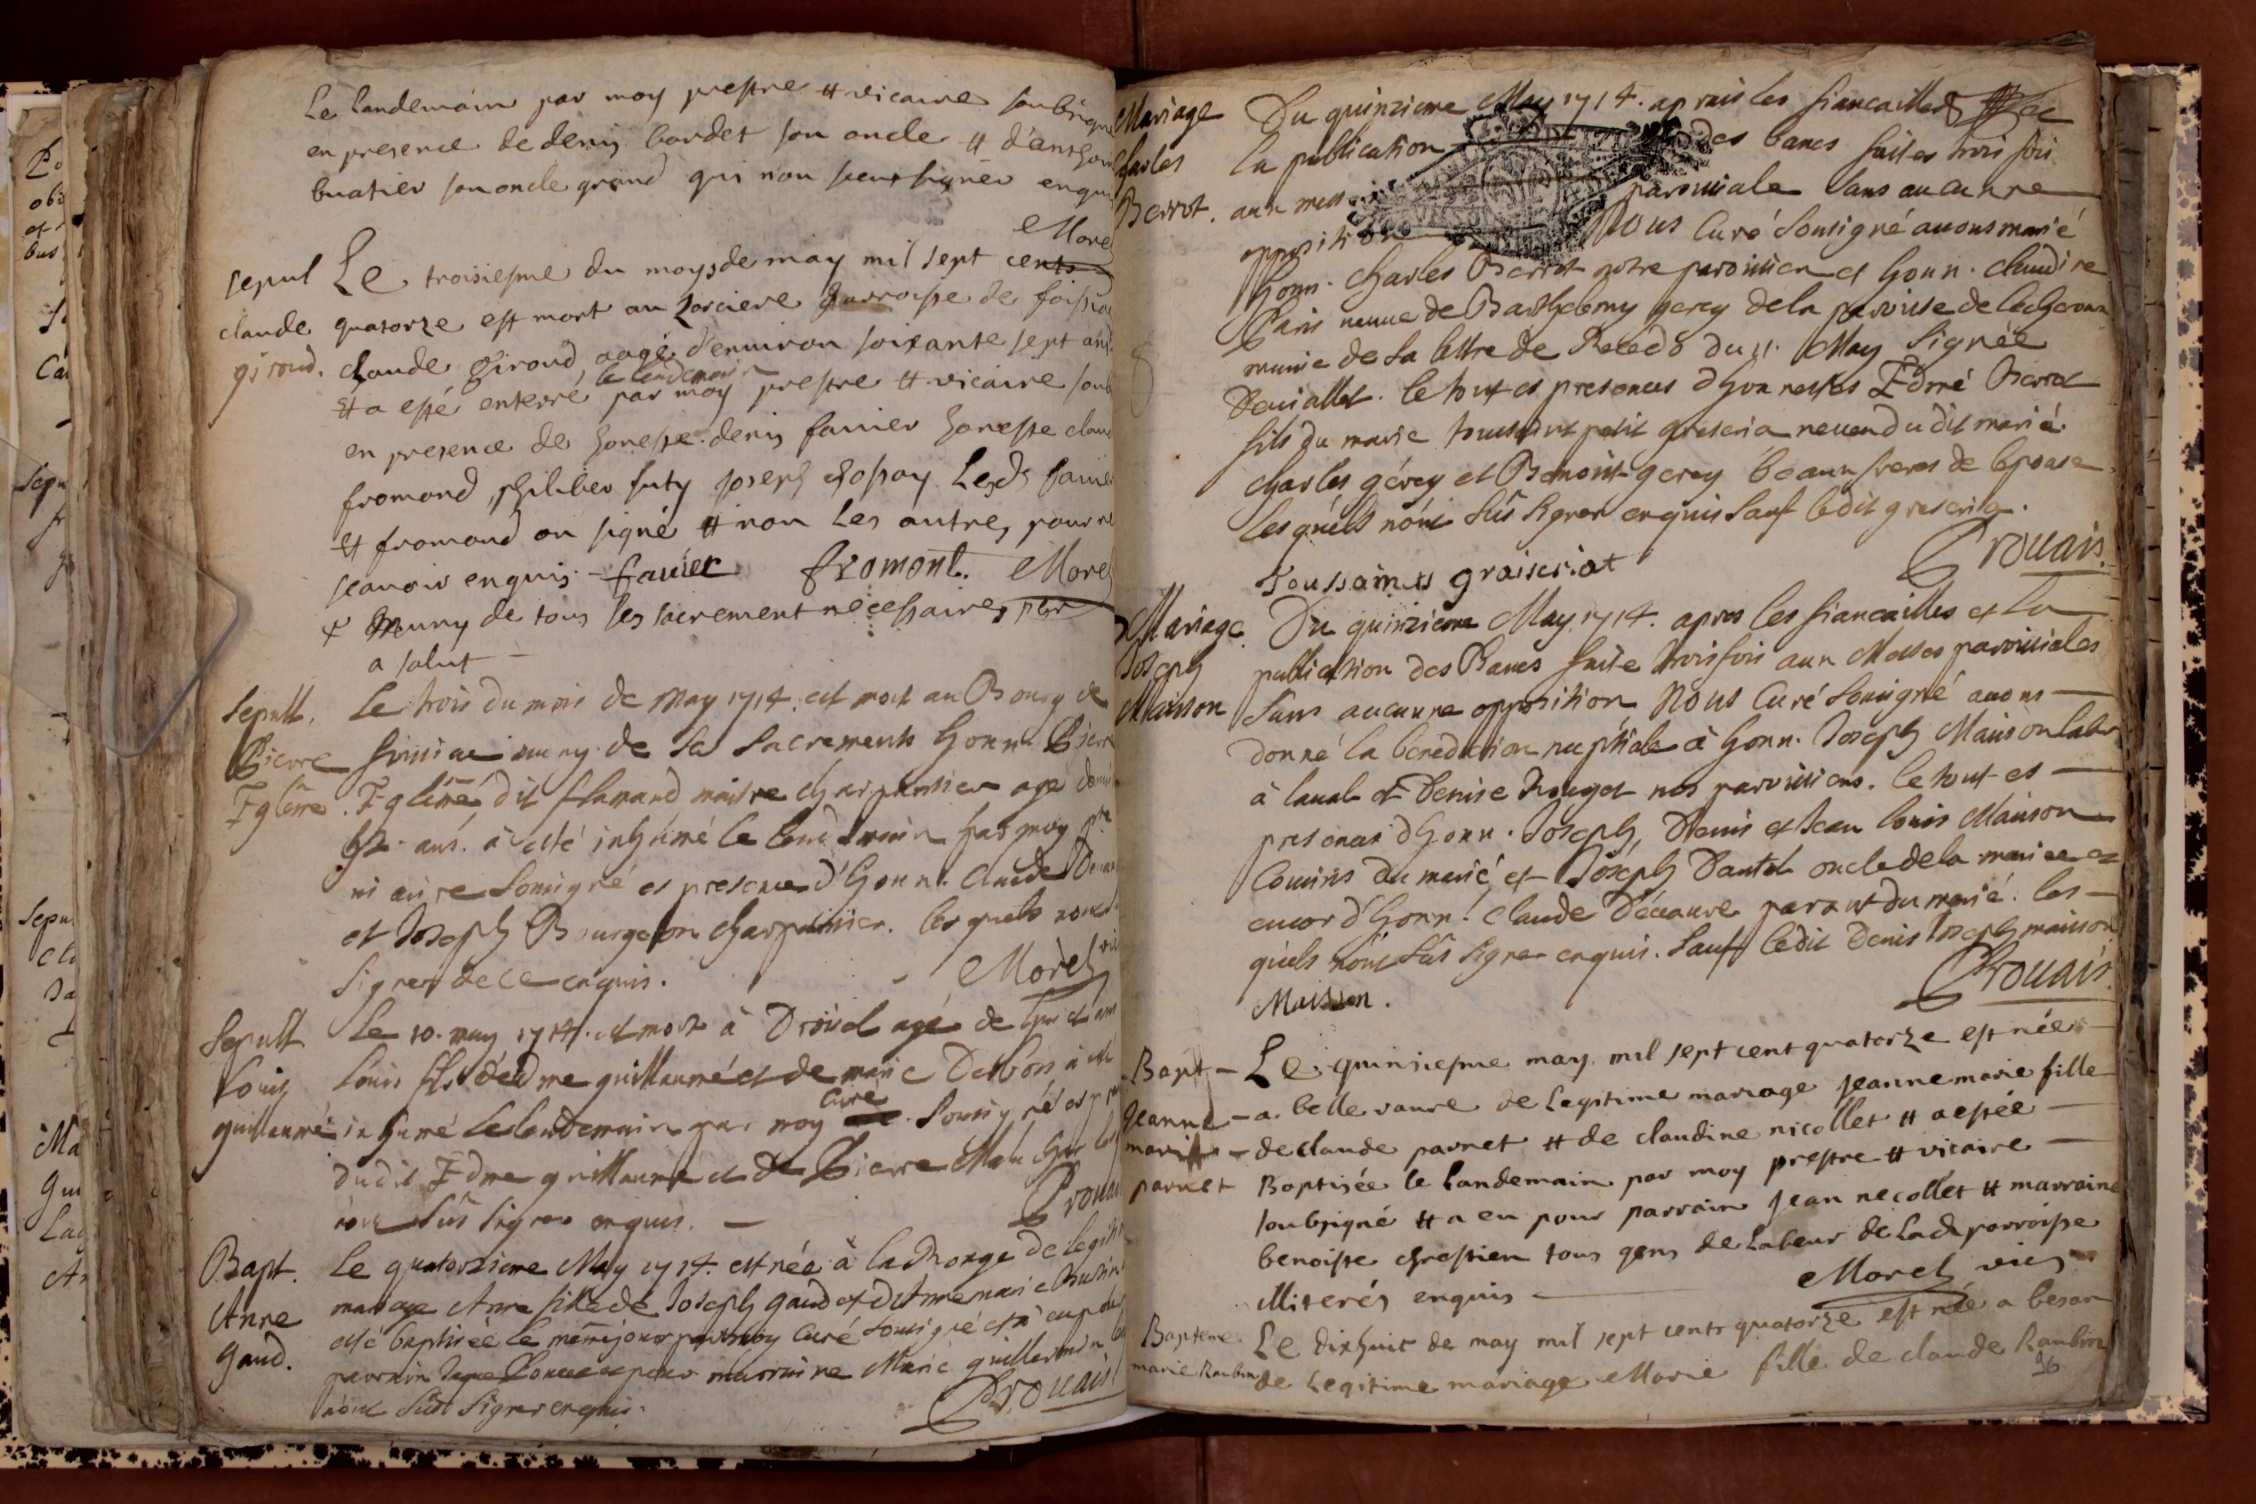 Le landemain par moy prestre et vicaire soubsigné
en presence de denis bardet son oncle et d'anthoin
buatier son oncle grand qui non sceu signer enquis
Morel
sepul Le troisiesme du moys de may mil sept cents
claude quatorze est mort au parroisse de foissia
giroud. claude Giroud, aagé d'enuiron soixante sept ans
et a esté enterré le lendemain par moy prestre et vicaire soub
en presence de honeste denis fauier honeste claud
fromond, philiber futy joseph chossay Lesds fauier
et fromond on signé et non Les autres pour ne
scauoir enquis fauier fromont. Morel
+ Muny de tous les sacrement necessaires pour
a salut
Sepult. Le trois du mois de May 1714. est mort au Bourg de
Pierre foissiac muny de ses sacrements honn. Pierre
dit flamand maitre charpentier agé
ans. a esté inhumé le lendemain par moy
vicaire sousigné es presence d'honn. Claude
et Joseph Bourgeon charpentier. les quels nont
signer de ce enquis. Morel vic
Sepult Le 10. may 1714. est mort à agé de
Louis Louis fils d'edme guillaumé et de marie a esté
guillaumé inhumé le lendemain par moy curé sousigné es
dudit Edme guillaumé et de Pierre
nont sûs signer enquis. Prouais
Bapt. Le quatorzieme May 1714. est née à de legiti
Anne mariage Anne fille de Joseph gaud et d'Anne marie
gaud. esté baptisée le même jour par moy Curé sousigné et a eu pour
parrain et pour marraine Marie guillermin
nont sûs signer enquis. Prouais
Mariage Du quinzieme May 1714. aprais les fiancailles et
Charles la publication des bancs faites trois fois
Berrot. aux mess paroissiale sans aucunne
opposition Nous Curé Sousigné auons marié
honn. Charles Berrot notre paroissien et honn. claudine
Paris veuue de Barthelemy gerey de la paroisse de
munie de sa lettre de Recedo du 11. May Signée
le tout es presences d'honnestes Edmé Berrot
fils du marié toussaint petit greseria neueu dudit marié
charles gérey et Benoist gerey beaux freres de lepouse
lesquels nont sûs signer enquis sauf ledit greseria.
Toussaints graiseriat Prouais.
Mariage. Du quinzieme May 1714. apres les fiancailles et la
Joseph publication des Bancs faite trois fois aux Messes paroissiales
Maisson Sans aucunne opposition Nous Curé Sousigné auons
donné la benediction nuptiale à honn. Joseph Maisson lab
à laual et Denise Rouget nos paroissiens. le tout es
presences d'honn. Joseph, Denis et Jean louis Maisson
Cousins du marié et Joseph oncle de la mariée et
encor d'honn. Claude parent du marié. les
quels nont sûs signer enquis. Sauf ledit Denis Joseph maisson
Maisson. Prouais.
Bapt Le quinziesme may mil sept cent quatorze est née
Jeanne a belle vaure de Legitime mariage Jeanne marie fille
marie de claude parnet et de claudine nicollet et a estée
parnet Baptisée le Landemain par moy prestre et vicaire
soubsigné et a eu pour parrain Jean nicollet et marraine
benoiste chrestien tous gens de Labeur de Lad parroisse
illiterés enquis Morel vic
Bapteme. Le dixhuit de may mil sept cents quatorze est née a besan
marie Raubin de Legitime mariage Marie fille de claude Raubin